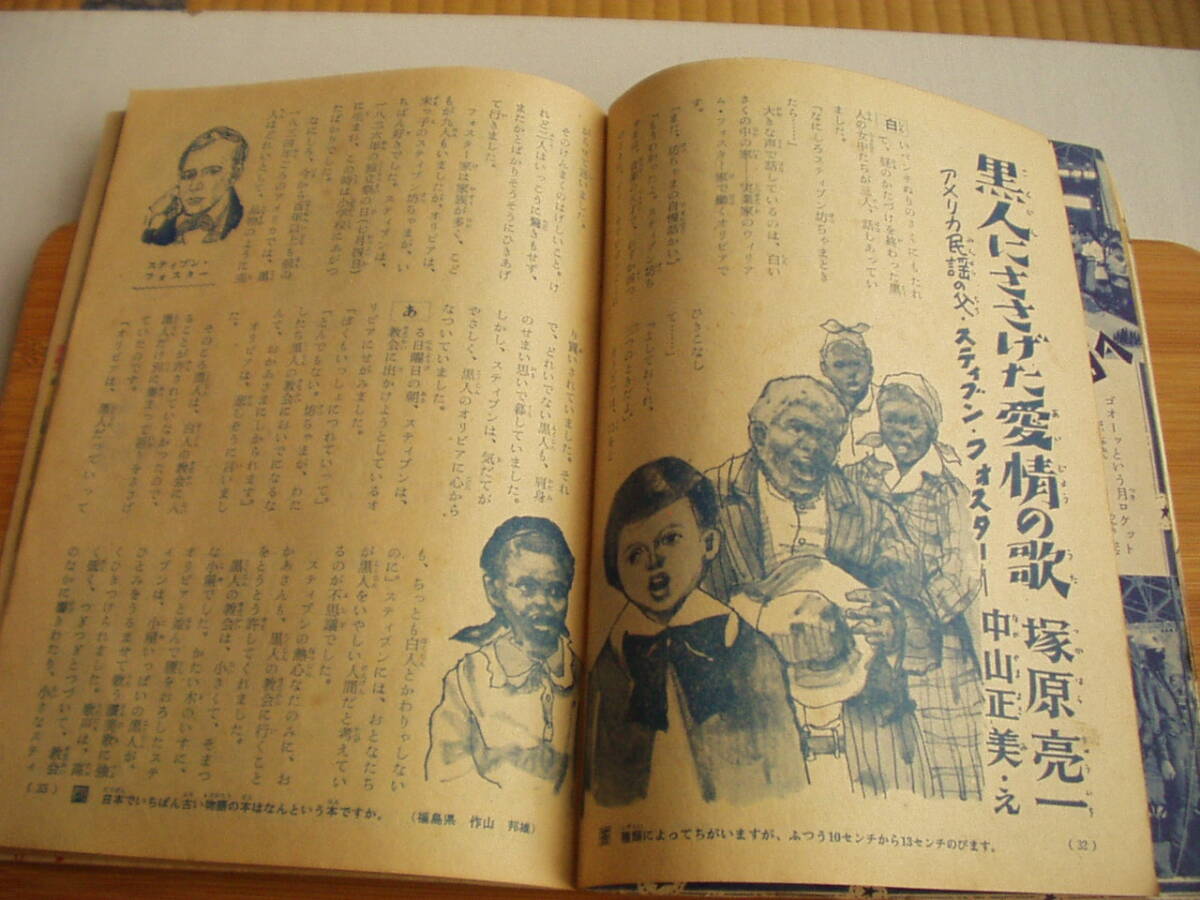 黒人にささげた愛情の歌
アメリカ民謡の父・スティブン・フォスター
塚原亮一
中山正美・え
白いペンキぬりのさくにもたれ
て、昼のかたづけを終わった黒
人の女中たちが三人、話しあってい
ました。
「なにしろスティブン坊ちゃまとき
たら……」
大きな声で話しているのは、白い
さくの中の家――実業家のウィリア
ム・フォスター家で働くオリビアで
す。
「また、坊ちゃまの自慢話かい」
ひきこなし
て……」
「よしておくれ。
そのけんまくのはげしいこと。け
れど二人はいっこうに驚きもせず、
またかとばかりそうそうにひきあげ
て行きました。
フォスター家は家族が多く、こど
もが九人もいましたが、オリビアは、
末っ子のスティブン坊ちゃまが、い
ちばん好きでした。スティブンは、
一八二六年の独立祭の日（七月四日）
に生まれ、この時は小学校にあがっ
たばかりでした。
スティブン・
フォスター
り買いされていました。それ
で、どれいでない黒人も、肩身
のせまい思いで暮していました。
しかし、スティブンは、気だてが
やさしく、黒人のオリビアに心から
なついていました。
ある日曜日の朝、スティブンは、
教会に出かけようとしているオ
リビアにせがみました。
「ぼくもいっしょにつれていって」
「とんでもない。坊ちゃまが、わた
したち黒人の教会においでになるな
んて、おかあさまにしかられます」
オリビアは、悲しそうに言いまし
た。
そのころ黒人は、白人の教会に入
ることが許されていなかったので、
黒人だけ別に集まって祈りをささげ
ていたのです。
「オリビアは、黒人だっていって
も、ちっとも白人とかわりゃしない
のに」スティブンには、おとなたち
が黒人をいやしい人間だと考えてい
るのが不思議でした。
スティブンの熱心なたのみに、お
かあさんも、黒人の教会に行くこと
をとうとう許してくれました。
黒人の教会は、小さくて、そまつ
な小屋でした。かたい木のいすに、
オリビアと並んで腰をおろしたステ
ィブンは、小屋いっぱいの黒人が、
ひとみをうるませて歌う讃美歌に強
くひきつけられました。歌声は、高
く低く、つぎつぎとつづいて、教会
のなかに響きわたり、小さなスティ
種類によってちがいますが、ふつう10センチから13センチのびます。
(32)
(33)
問 日本でいちばん古い物語の本はなんという本ですか。 （福島県 作山 邦雄）
ゴオーッという月ロケット